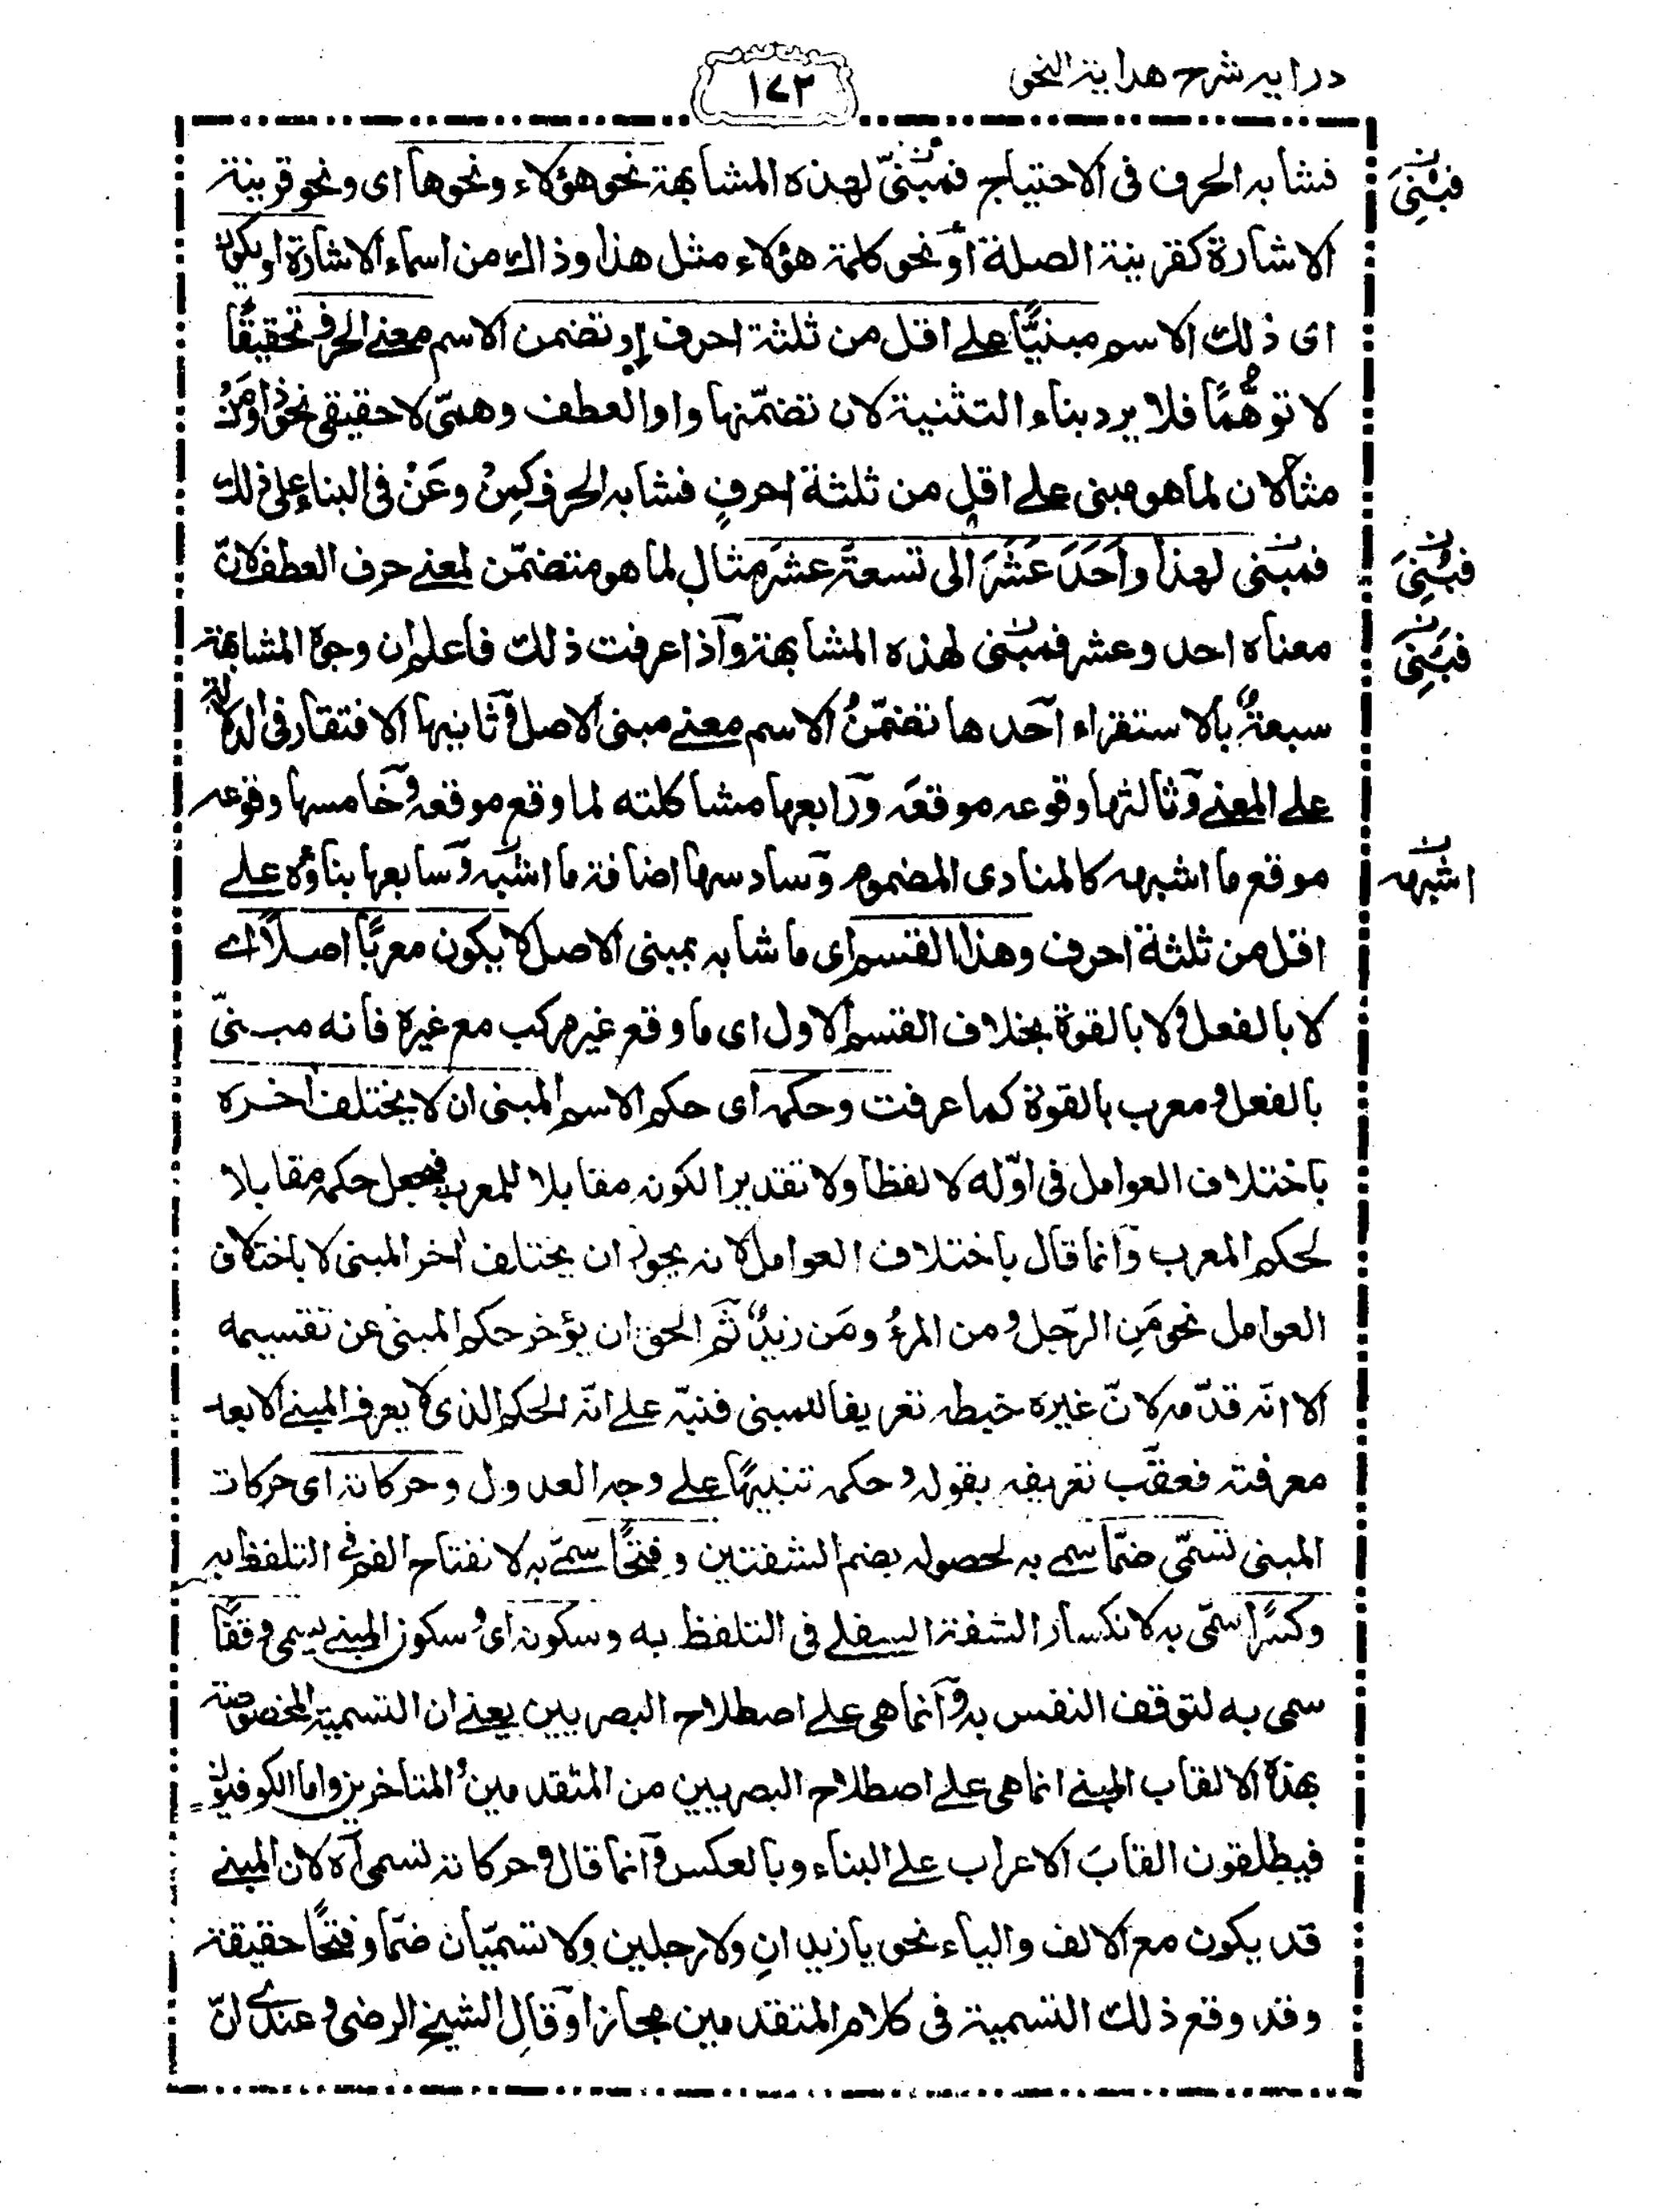 درايه شرح هداية النحو
١٧٣
فشابه الحرف فى الاحتياج فمبنىّ لهذه المشابهة نحو هؤلاء ونحوها اى ونحو قرينة
فبُنِىَ
الاشارة كقرينة الصلة أو نحو كلمة هؤلاء مثل هذا وذاك من اسماء الاشارة او يكون
اى ذلك الاسم مبنيًّا على اقل من ثلثة احرف او تضمن الاسم معنى الحرف تحقيقًا
لا توهُّمًا فلا يرد بناء التثنية لان تضمّنها واو العطف وهمىّ لا حقيقى نحو ذا ومَنْ
مثالان لما هو مبنى على اقل من ثلثة احرفٍ فشابه الحرف كمِنْ وعَنْ فى البناء على ذلك
فمبنى لهذا واَحَدَ عَشَرَ الى تسعةَ عشَرَ مثال لما هو متضمّن لمعنى حرف العطف لانّ
فبُنِىَ
معناه احد وعشر فمبنى لهذه المشابهة واذا عرفت ذلك فاعلم ان وجوه المشابهة
فبُنِىَ
سبعةٌ بالاستقراء احدها تضمّنُ الاسم معنى مبنى الاصل وثانيها الافتقار فى الدلالة
على المعنى وثالثها وقوعه موقعَه ورابعها مشاكلته لما وقع موقعه وخامسها وقوعه
موقع ما اشبهه كالمنادى المضموم وسادسها اضافة ما اشبه وسابعها بناؤه على
اشبهه
اقل من ثلثة احرف وهذا القسم اى ما شابه بمبنى الاصل لا يكون معربًا اصلًا اى
لا بالفعل ولا بالقوة بخلاف القسم الاول اى ما وقع غير مركب مع غيره فانه مبنىّ
بالفعل ومعرب بالقوة كما عرفت وحكمه اى حكم الاسم المبنى ان لا يختلف اخره
باختلاف العوامل فى اوّله لا لفظا ولا تقديرا لكونه مقابلا للمعرب فجعل حكمه مقابلا
لحكم المعرب وانما قال باختلاف العوامل لانه يجوز ان يختلف اخر المبنى لا باختلاف
العوامل نحو مَنِ الرّجل ومن المرءُ ومَن زيدٌ ثم الحق ان يؤخر حكم المبنى عن تقسيمه
الا انّه قدّمه لانّ غيره خيطه تعريفا للمبنى فنبّه على انّه الحكم الذى لا يعرف المبنى الا بعد
معرفته فعقّب تعريفه بقوله وحكمه تنبيهًا على وجه العدول وحركاته اى حركات
المبنى تسمّى ضمّا سمى به لحصوله بضم الشفتين وفتحًا سمّى به لانفتاح الفم فى التلفظ به
وكسرًا سمّى به لانكسار الشفة السفلى فى التلفظ به وسكونه اى سكون المبنى يسمى وقفًا
سمى به لتوقف النفس به وانما هى على اصطلاح البصريين يعنى ان التسمية المخصوصة
بهذه الالقاب المبنى انما هى على اصطلاح البصريين من المتقدمين والمتاخرين واما الكوفيون
فيطلقون القابَ الاعراب على البناء وبالعكس وانما قال وحركاته تسمى آه لان المبنى
قد يكون مع الالف والياء نحو يا زيدانِ ولا رجلين ولا تسمّيان ضمّا وفتحًا حقيقة
وقد وقع ذلك التسمية فى كلام المتقدمين مجازا وقال الشيخ الرضى وعندى انّ